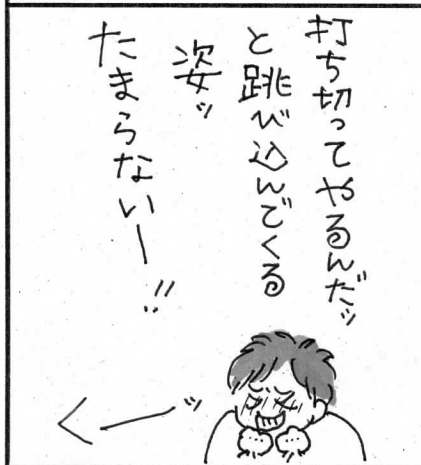 打ち切ってやるんだッ
と跳び込んでくる
姿ッ
たまらないー!!
くーッ